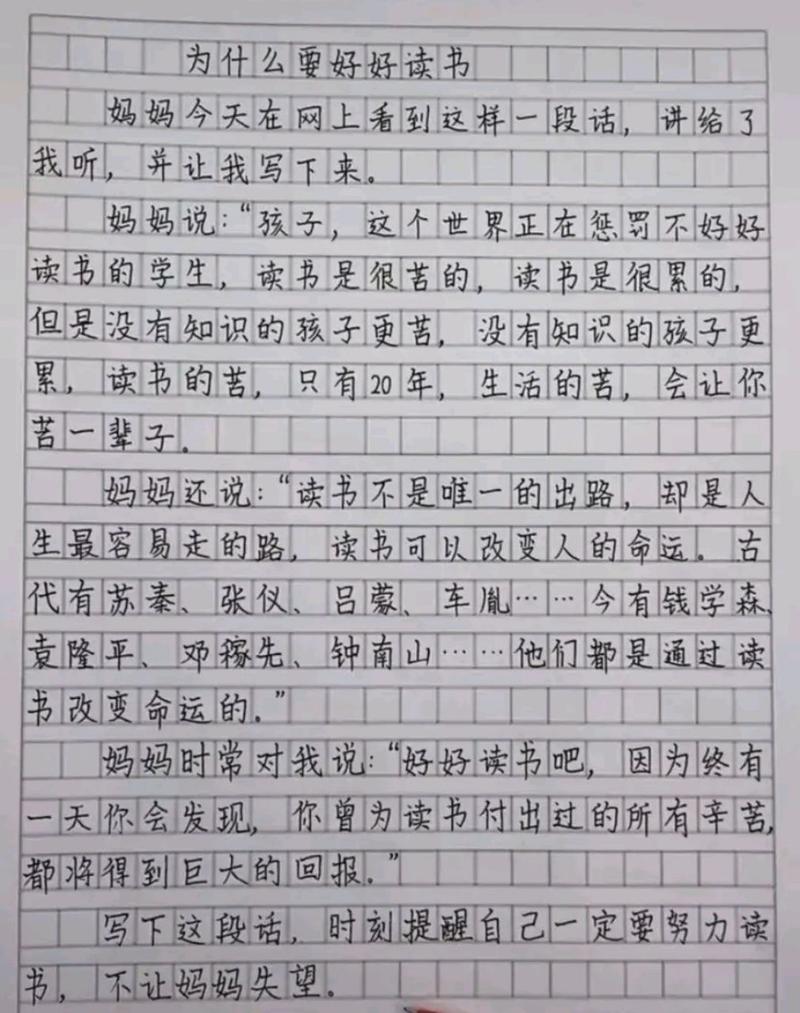 为什么要好好读书
妈妈今天在网上看到这样一段话，讲给了
我听，并让我写下来。
妈妈说：“孩子，这个世界正在惩罚不好好
读书的学生，读书是很苦的，读书是很累的，
但是没有知识的孩子更苦，没有知识的孩子更
累，读书的苦，只有20年，生活的苦，会让你
苦一辈子。
妈妈还说：“读书不是唯一的出路，却是人
生最容易走的路，读书可以改变人的命运。古
代有苏秦、张仪、吕蒙、车胤……今有钱学森、
袁隆平、邓稼先、钟南山……他们都是通过读
书改变命运的。”
妈妈时常对我说：“好好读书吧，因为终有
一天你会发现，你曾为读书付出过的所有辛苦，
都将得到巨大的回报。”
写下这段话，时刻提醒自己一定要努力读
书，不让妈妈失望。